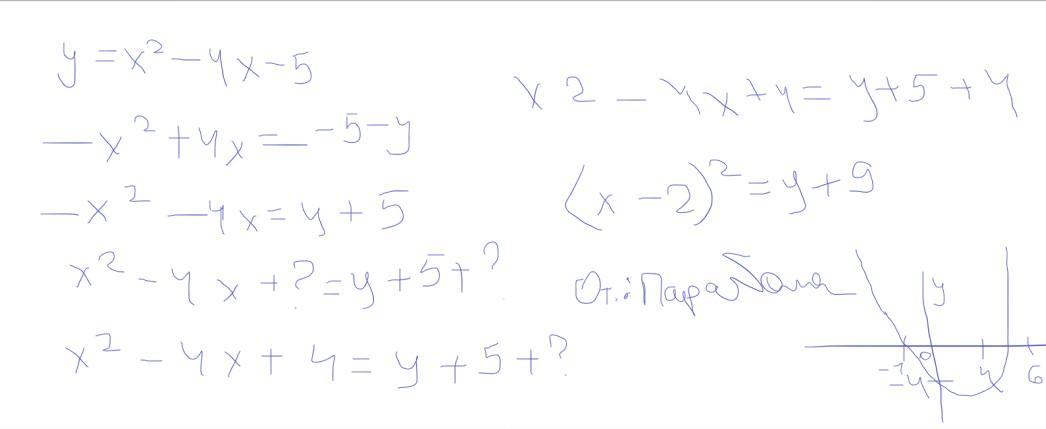 y = x² - 4x - 5
-x² + 4x = -5 - y
-x² - 4x = y + 5
x² - 4x + ? = y + 5 + ?
x² - 4x + 4 = y + 5 + ?
x2 - 4x + 4 = y + 5 + 4
(x - 2)² = y + 9
От.: Парабола
y
-1 0 4 6
-4